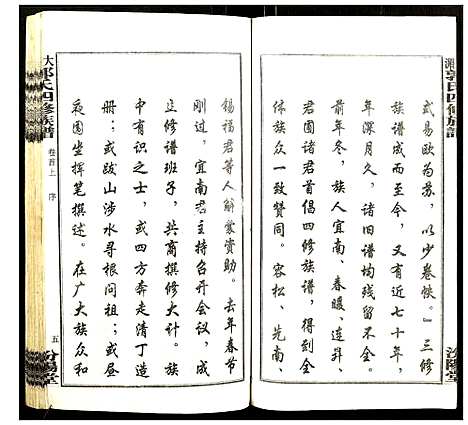 郭氏四修族譜
汾陽堂
式易欧为苏,以少卷帙。』三修
族谱成而至今,又有近七十年,
年深月久,诸旧谱均残留不全。
前年冬,族人宜南、春暖、连昇、
君圃诸君首倡四修族谱,得到全
体族众一致赞同。容松、先南、
大郭氏四修族譜
卷首上 序
五
汾陽堂
锡福君等人解囊资助。去年春节
刚过,宜南君主持召开会议,成
立修谱班子,共商撰修大计。族
中有识之士,或四方奔走清丁造
册;或跋山涉水寻根问祖;或昼
夜围坐挥笔撰述。在广大族众和